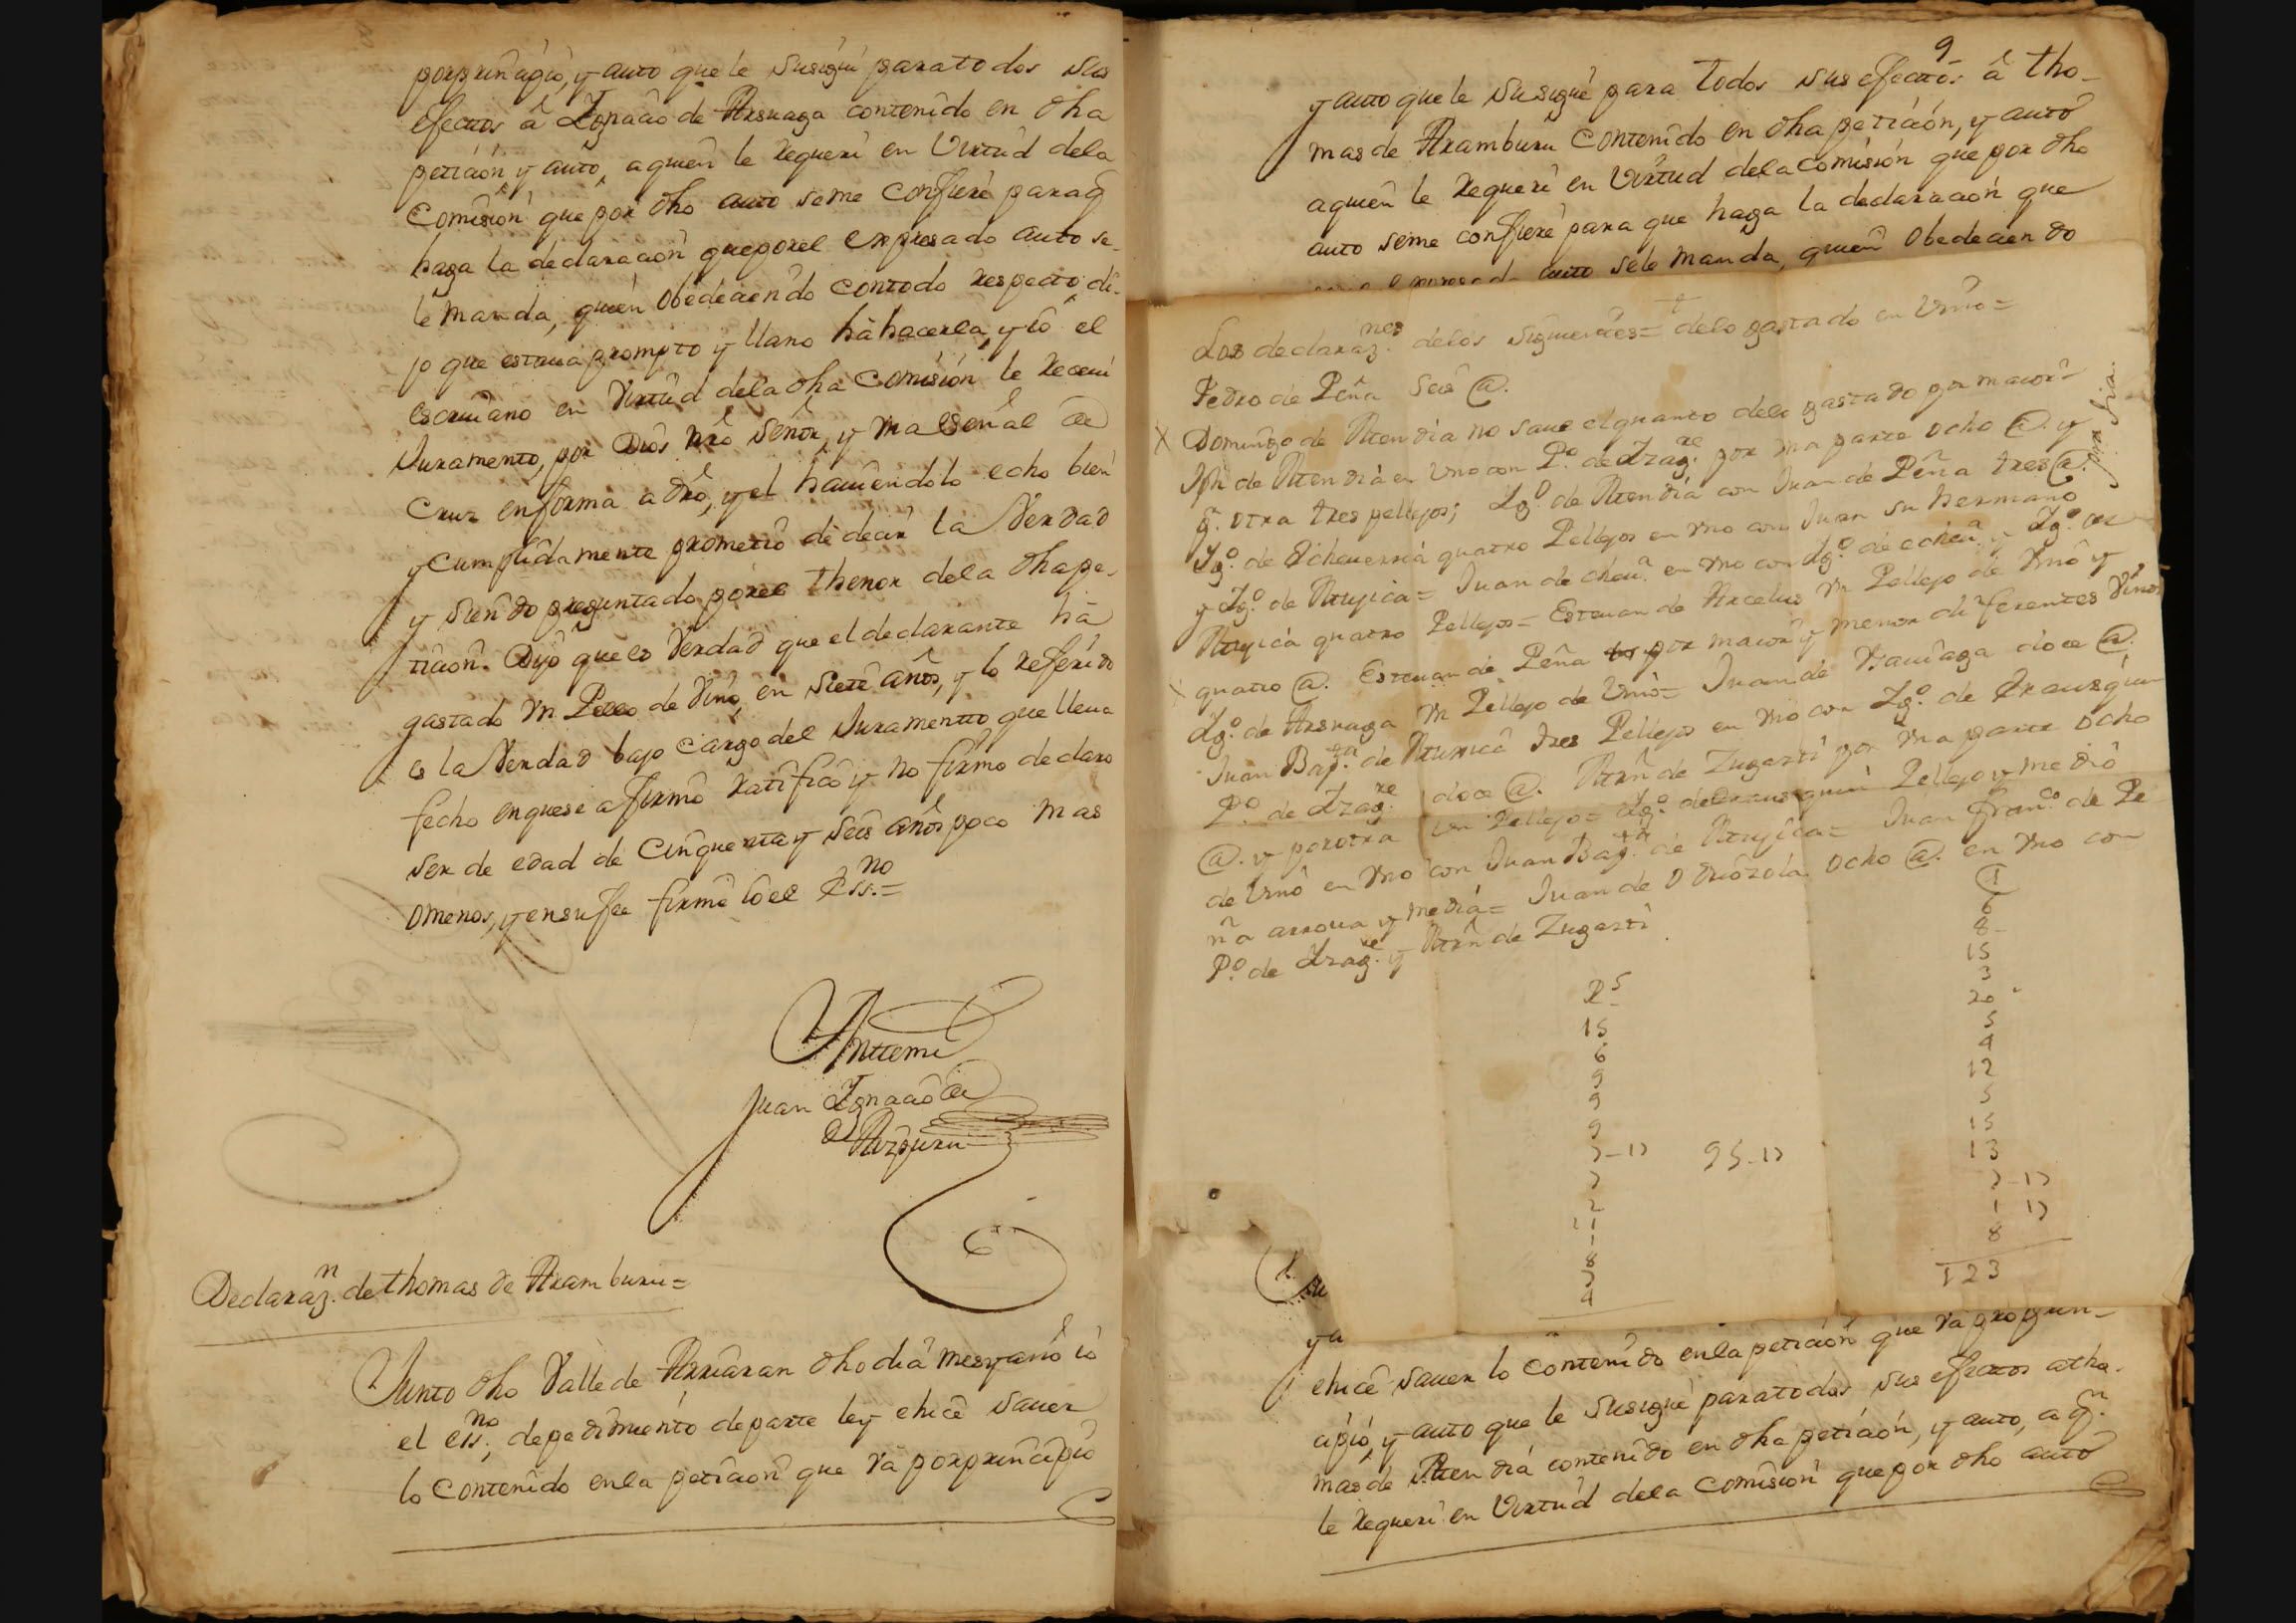 por prinçipio, y auto que le susigue para todos sus
efectos â Ignaçio de Arsuaga contenido en dha
petiçion y auto, a quien le requeri en Virtud dela
Comision que por dho auto seme Confiere paraq̃
haga la declaraçion que por el expresado auto se-
le manda, quien Obedeçiendo con todo respecto di-
jo que estaua prompto y llano hà haçerla, y Iô el
escriuano en Virtud dela dha Comisión le Reçeui
Juramento, por Dios nrô Señor, y Vna señal de
Cruz en forma a drô, y el hauiendolo echo bien
y Cumplidamente prometiô de deçir la Verdad
y siendo preguntado por el thenor dela dha pe-
tiçion. Dijô que es Verdad que el declarante hâ
gastado Vn Pelleo de Vino, en siete años, y lo referido
es la Verdad bajo cargo del Juramentto que lleua
fecho en que se afirmô ratificô y no firmo declaro
ser de edad de Cinquenta y seis años poco mas
omenos, y ensufee firmê Iô el Ess.no=
Anttemi
Juan Ignaçio de
Aizpuru
Declaraz.n de thomas de Aramburu=
Junto dho Valle de Arriaran dho dia mes y año io
el ess.no, de pedimiento de parte ley e hiçê sauer
lo Contenido en la petiçion que Và por prinçipio
9
y auto que le susigue para todos sus efectos â tho-
mas de Aramburu Contenido en dha petiçión, y auto
a quien le requeri en Virtud dela Comisión que por dho
auto seme confiere para que haga la declaraçion que
auto sele manda, quien Obedeçiendo
Los declaraz.nes delos siguientes= delo gastado en Vino=
Pedro de Peña Seis @.
X Domingo de Atendia no saue el quanto delo gastado por maior
Jph de Atendia en Vno con P.o de Izag.re por vna parte ocho @. y
p.r otra tres pellejos; Ig.o de Atendia con Juan de Peña tres @.
por dia.
Ig.o de Echeuerria quatro Pellejos en Vno con Juan su hermano
y Ig.o de Auyica= Juan de cheu.a en Vno con Ig.o de echeu.a y Ig.o de
Auyica quatro Pellejos= Esteuan de Arcelus Vn Pellejo de Vino y
X quatro @. Esteuan de Peña por maior y menor diferentes Vinos
Ig.o de Arsuaga Vn Pellejo de Vino= Juan de Bauiaga doçe @.
Juan Bap.ta de tres Pellejos en Vno con Ig.o de
P.o de Izag.re doçe @. Atrn de Zugasti por Vna parte ocho
@. y por otra vn Pellejo= Ig.o de Pellejo y medio
de Vino en Vno con Juan Bap.ta de Auyica= Juan Fran.co de Pe
ña arroua y media= Juan de Odriozola ocho @. en Vno con
P.o de Izag.re y Atrn de Zugasti.
25
15
6
9
9
9
95-17
2
11
1
8
4
@
6
8-
15
3
20
5
4
12
5
15
13
8
123
ehiçê sauer lo Contenido en la petiçion que Và por prin-
çipio, y auto que le susigue para todos sus efectos atho-
mas de Atendia contenido en dha petiçión, y auto, a q.n
le requeri en Virtud dela Comisión que por dho auto